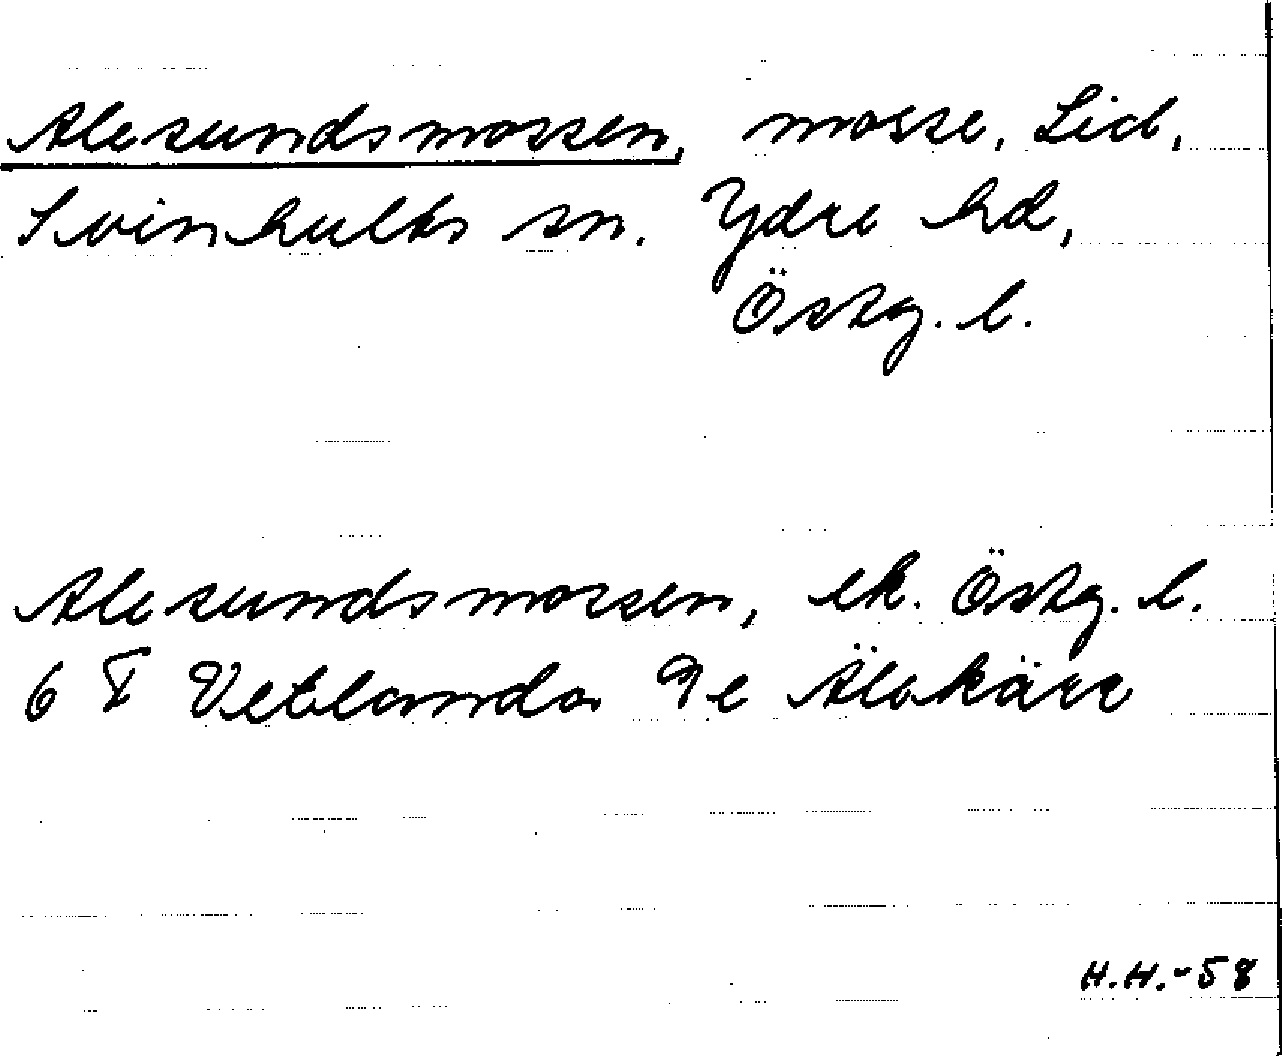 Alesundsmossen, mosse, Lid,
Svinhults sn. Ydre hd,
Östg. l.
Alesundsmossen, ek. Östg. l.
6 F Vetlanda 9e Älakärr
H.H.-58